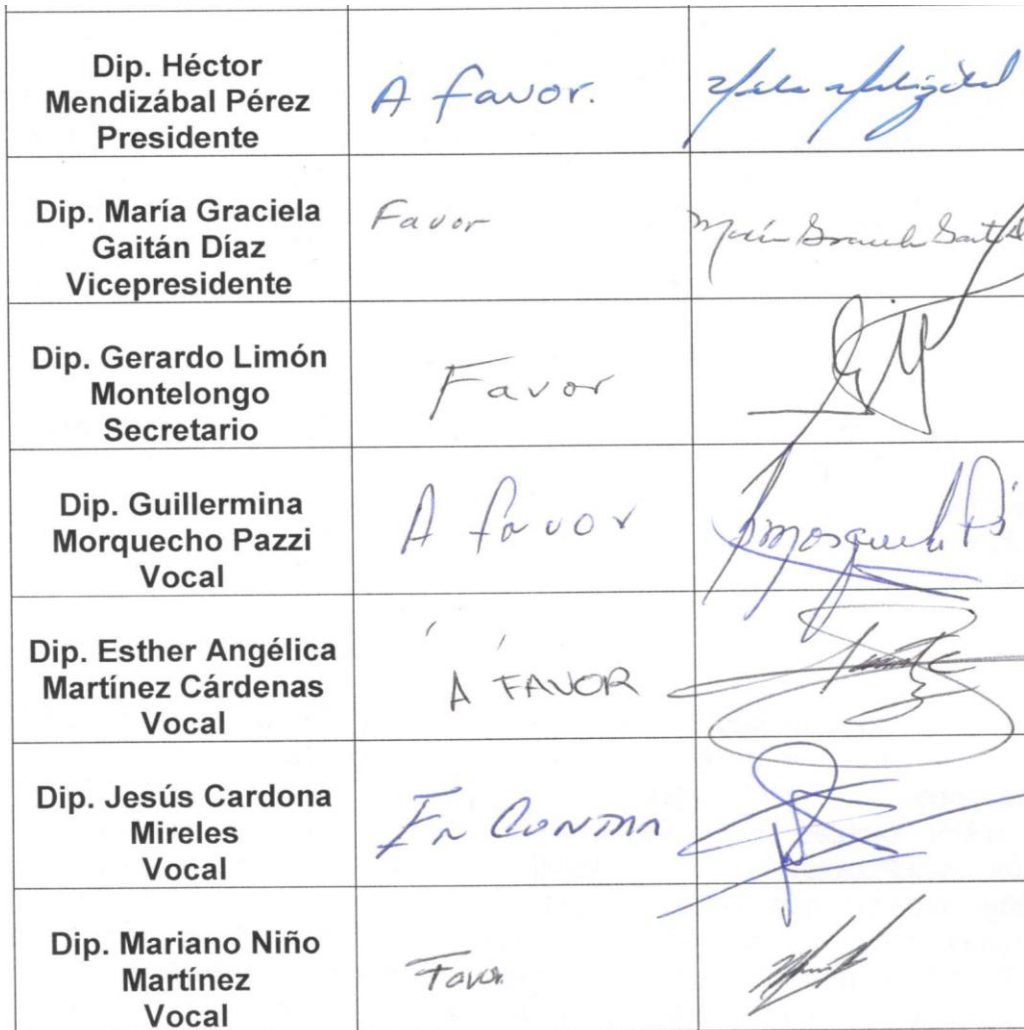 Dip. Héctor
Mendizábal Pérez
Presidente
A favor.
Dip. María Graciela
Gaitán Díaz
Vicepresidente
Favor
María Graciela Gaitán
Dip. Gerardo Limón
Montelongo
Secretario
Favor
Dip. Guillermina
Morquecho Pazzi
Vocal
A favor
Dip. Esther Angélica
Martínez Cárdenas
Vocal
A FAVOR
Dip. Jesús Cardona
Mireles
Vocal
En Contra
Dip. Mariano Niño
Martínez
Vocal
Favor